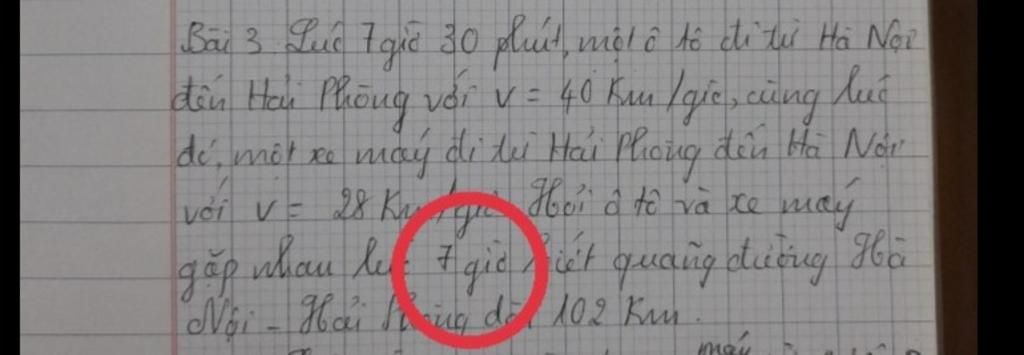 Bài 3 Lúc 7 giờ 30 phút, một ô tô đi từ Hà Nội
đến Hải Phòng với v = 40 Km/giờ, cùng lúc
đó, một xe máy đi từ Hải Phòng đến Hà Nội
với v = 28 Km/giờ Hỏi ô tô và xe máy
gặp nhau lúc 7 giờ biết quãng đường Hà
Nội - Hải Phòng dài 102 Km.
máy